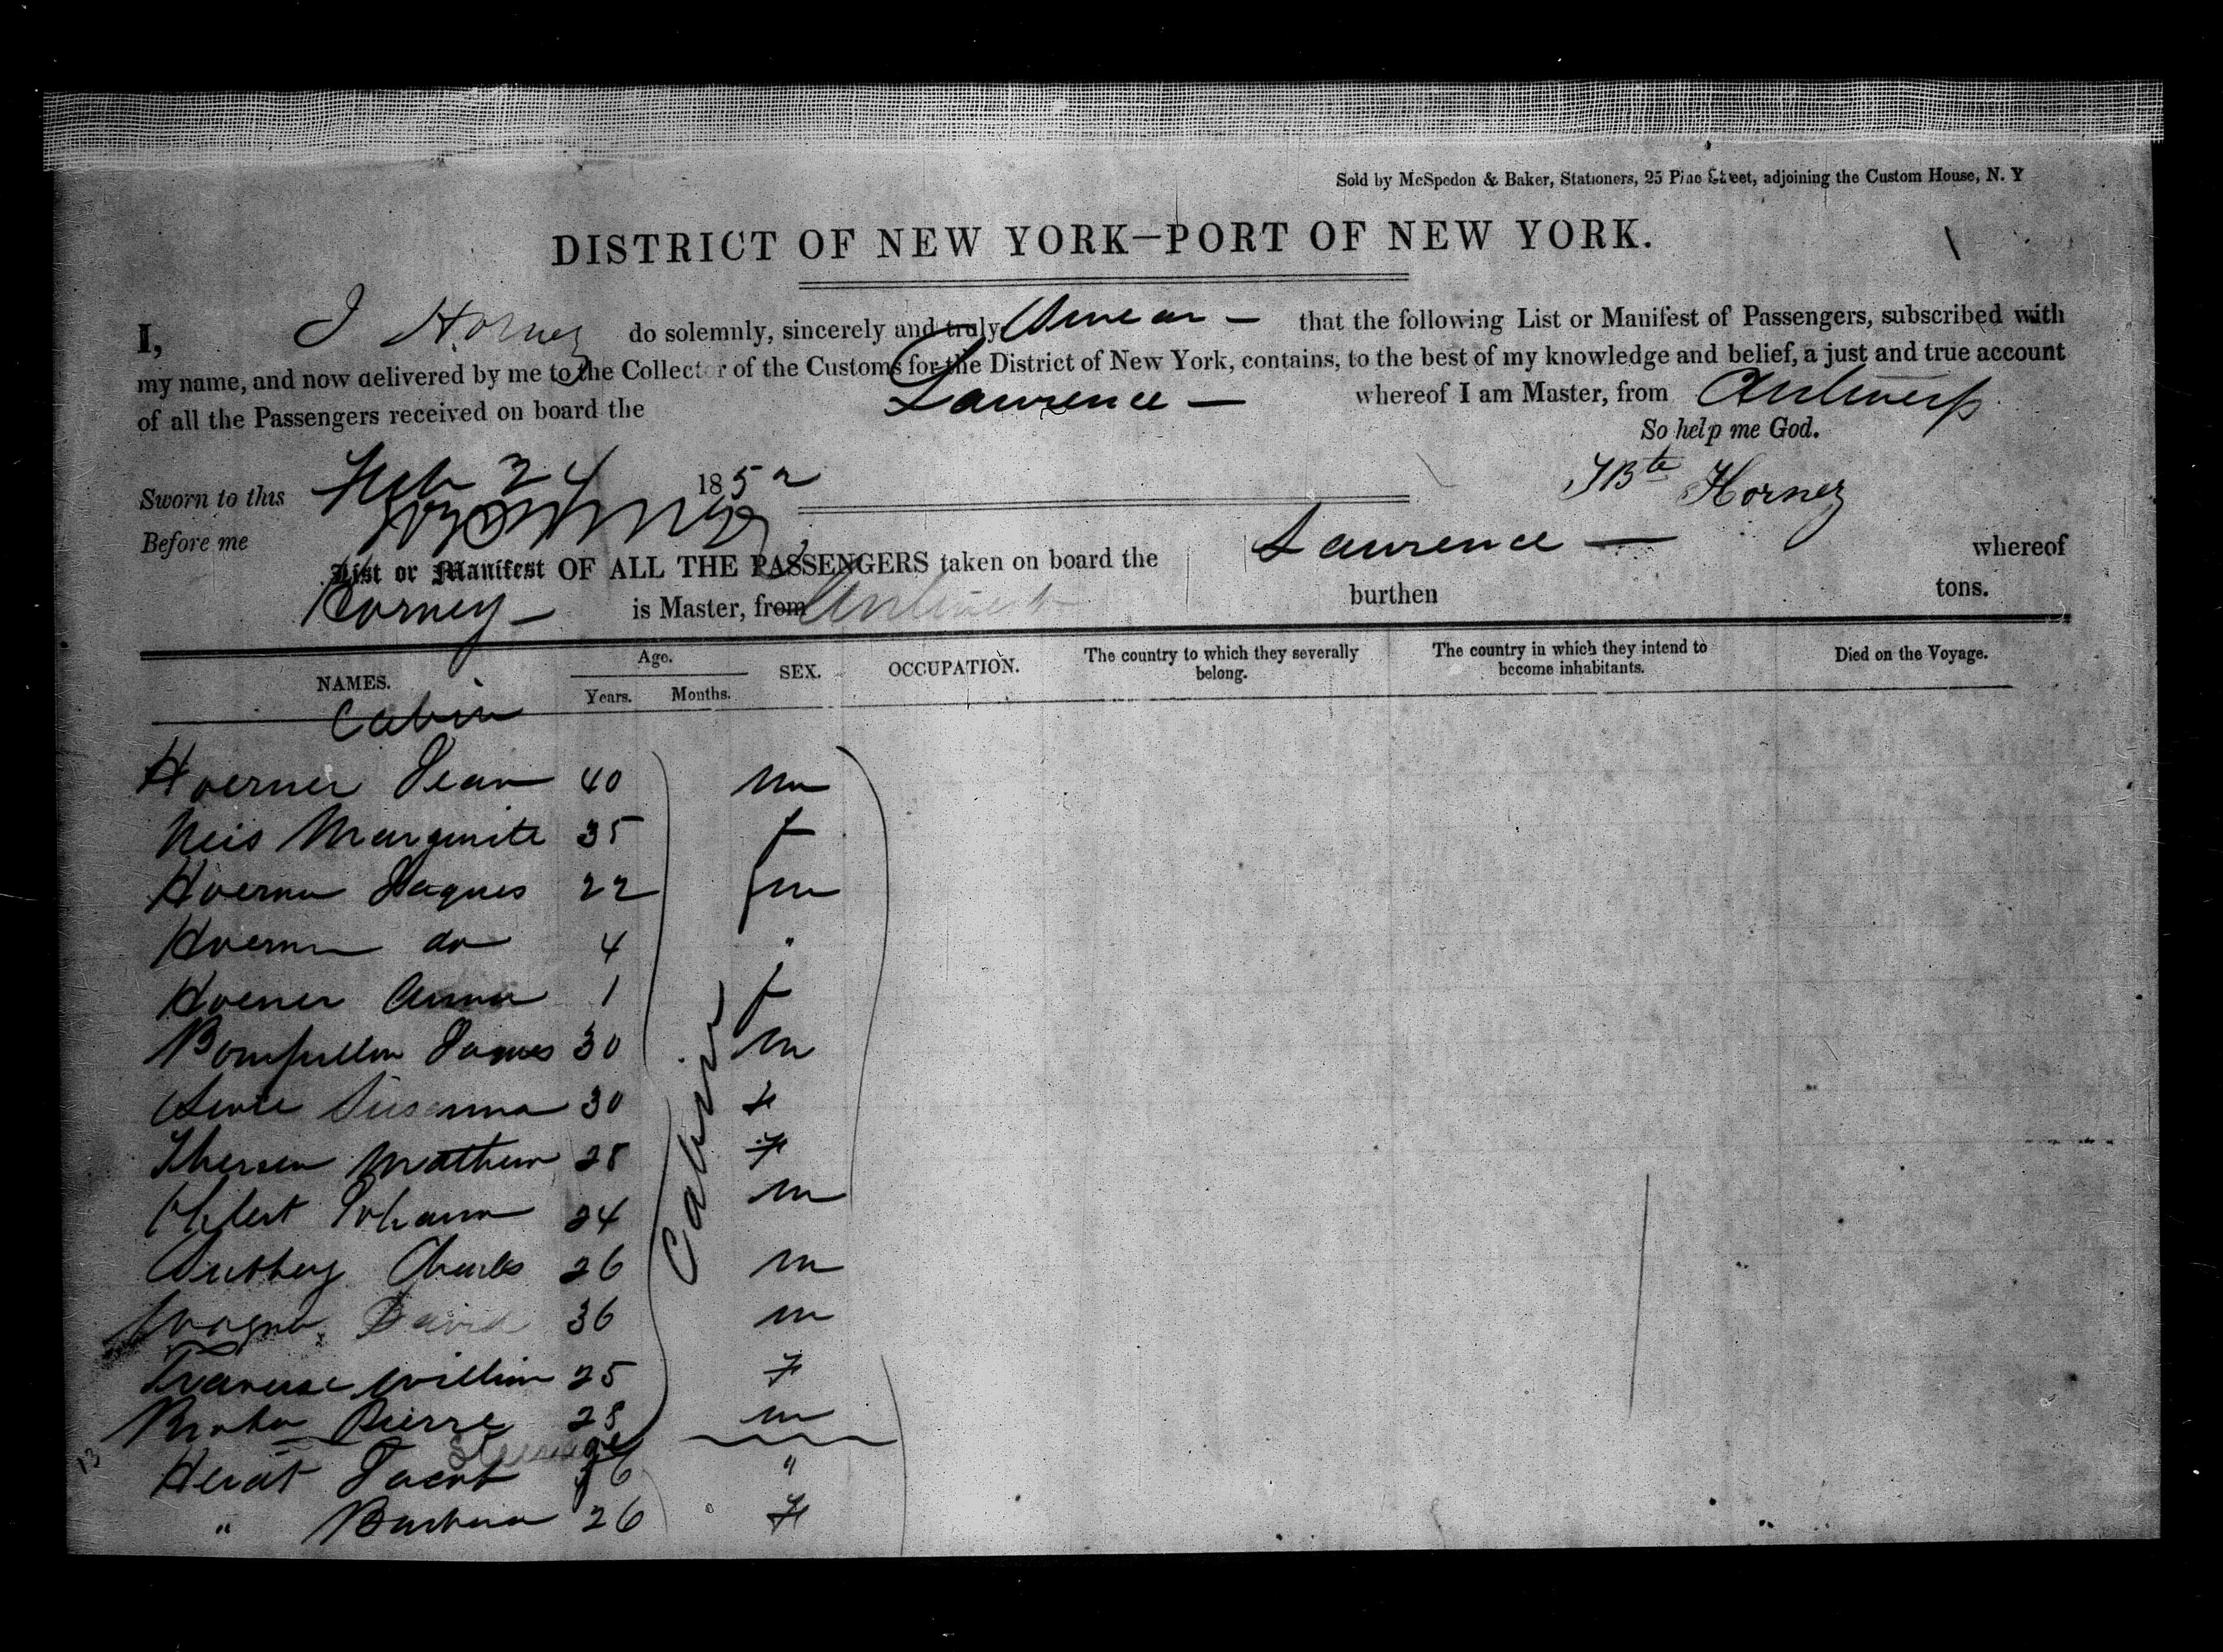 Sold by McSpedon & Baker, Stationers, 25 Pine Street, adjoining the Custom House, N. Y
DISTRICT OF NEW YORK—PORT OF NEW YORK.
I, J Hornez do solemnly, sincerely and truly Swear — that the following List or Manifest of Passengers, subscribed with
my name, and now delivered by me to the Collector of the Customs for the District of New York, contains, to the best of my knowledge and belief, a just and true account
of all the Passengers received on board the Lawrence — whereof I am Master, from Antwerp
So help me God.
Sworn to this Feb 24 1852
JBte Hornez
Before me
List or Manifest OF ALL THE PASSENGERS taken on board the Lawrence — whereof
Horney — is Master, from Antwerp burthen tons.
NAMES. Age. Years. Months. SEX. OCCUPATION. The country to which they severally belong. The country in which they intend to become inhabitants. Died on the Voyage.
Cabin
Hoerner Jean 40 m
Neis Marguerite 35 f
Hoerner Jaques 22 m
Hoerner do 4 "
Hoerner Anna 1 f
Jaques 30 m
Susanna 30 f
Mathew 28 f
Johann 24 m
Charles 26 m
David 36 m
William 25 F
Pierre 28 m
Cabin
13
Steerage
Jacob 36 "
" Barbara 26 F